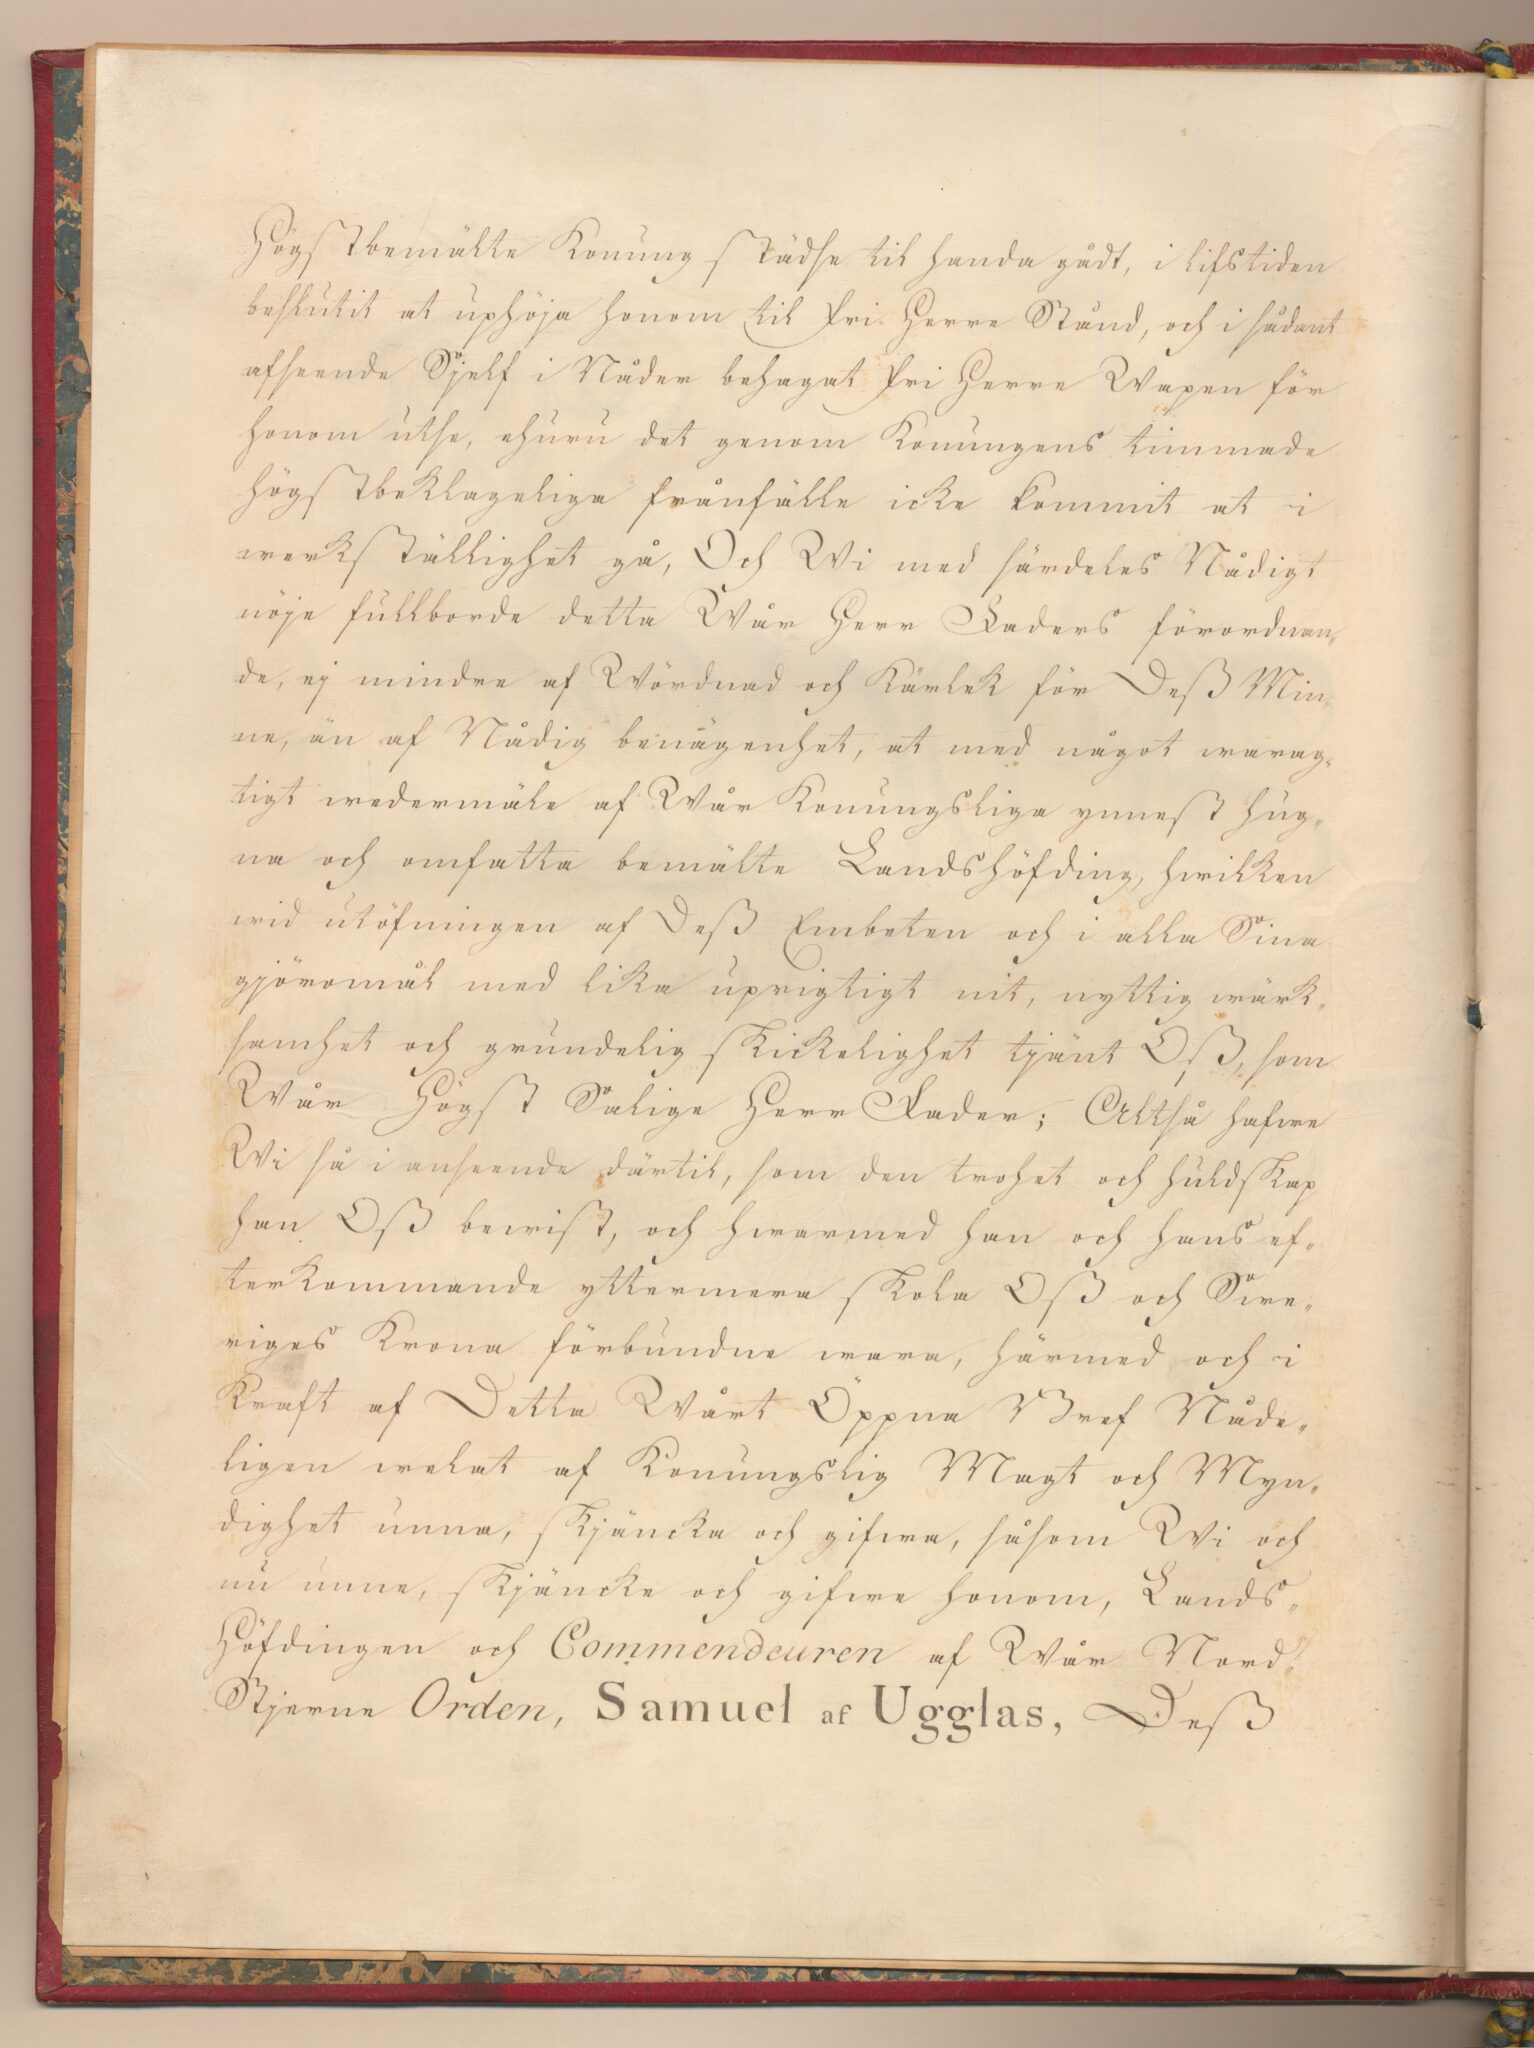 Högstbemälte Konung städse til handa gådt, i lifstiden
beslutit at uphöja honom til Fri Herre Stånd, och i sådant
afseende Sjelf i Nåder behagat Fri Herre Wapen för
honom utse, ehuru det genom Konungens timmade
högstbeklageliga frånfälle icke kommit at i
werkställighet gå, Och Wi med särdeles Nådigt
nöje fullborde detta Wår Herr Faders förordnan„
de, ej mindre af Wördnad och Kärlek för Deß Min„
ne, än af Nådig benägenhet, at med något warag„
tigt wedermäle af Wår Konungsliga ynnest hug„
na och omfatta bemälte Landshöfding, hwilken
wid utöfningen af Deß Embeten och i alla Sina
gjöromål med lika uprigtigt nit, nyttig wärk„
samhet och grundelig skickelighet tjänt Oß, som
Wår Högst Salige Herr Fader; Altså hafwe
Wi så i anseende därtil, som den trohet och huldskap
han Oß bewist, och hwarmed han och hans ef„
terkommande yttermera skola Oß och Swe„
riges Krona förbundne wara, härmed och i
Kraft af Detta Wårt Öppna Bref Nåde„
ligen welat af Konungslig Magt och Myn„
dighet unna, skjäncka och gifwa, såsom Wi och
nu unne, skjäncke och gifwe honom, Lands„
Höfdingen och Commendeuren af Wår Nord„
Stjerne Orden, Samuel af Ugglas, Deß